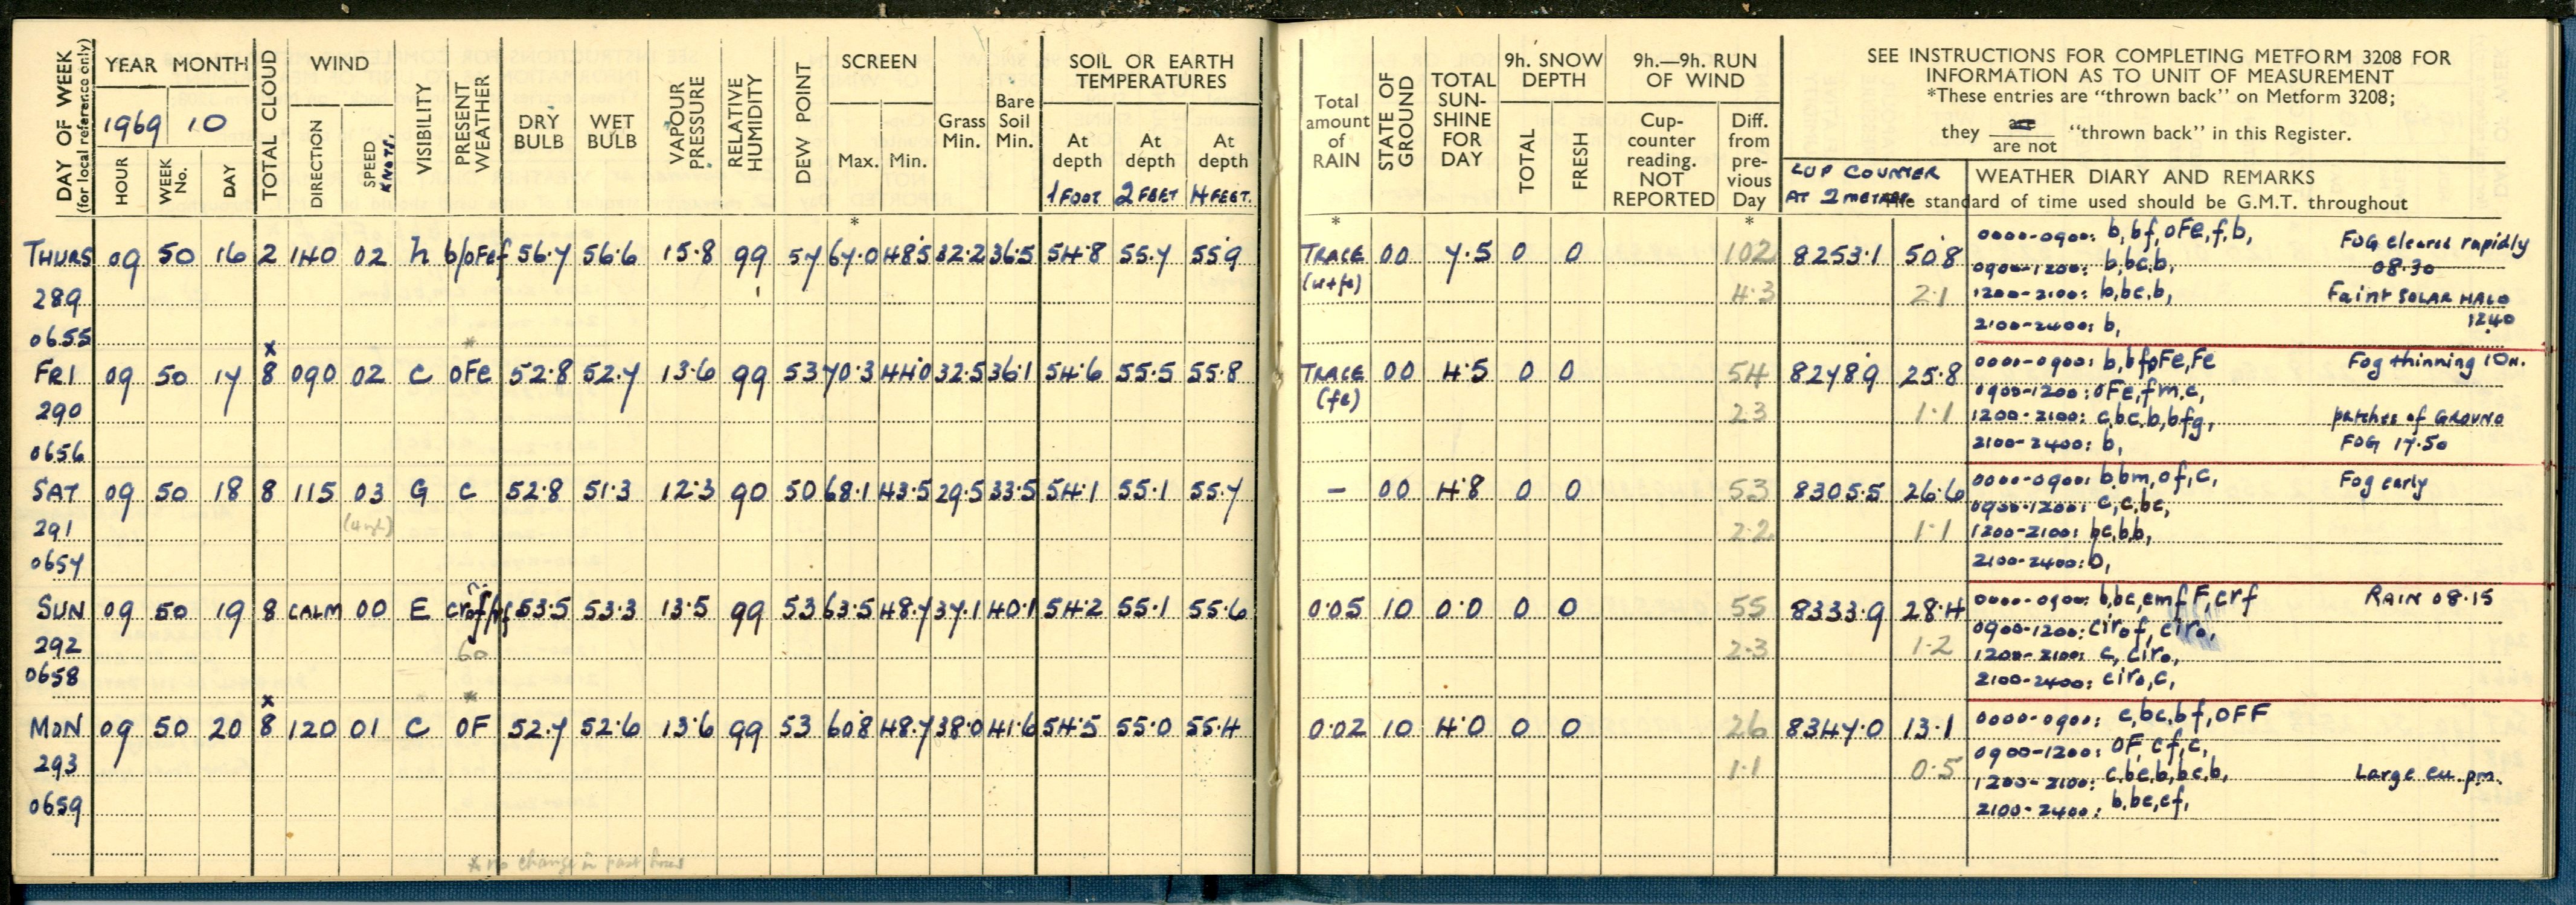 DAY OF WEEK
(for local reference only)
YEAR MONTH
1969 10
HOUR
WEEK No.
DAY
TOTAL CLOUD
WIND
DIRECTION
SPEED KNOTS.
VISIBILITY
PRESENT WEATHER
DRY BULB
WET BULB
VAPOUR PRESSURE
RELATIVE HUMIDITY
DEW POINT
SCREEN
Max. Min.
Grass Min.
Bare Soil Min.
SOIL OR EARTH TEMPERATURES
At depth 1 FOOT
At depth 2 FEET
At depth 4 FEET.
Total amount of RAIN
STATE OF GROUND
TOTAL SUN-SHINE FOR DAY
9h. SNOW DEPTH
TOTAL
FRESH
9h.—9h. RUN OF WIND
Cup-counter reading. NOT REPORTED
Diff. from pre-vious Day
SEE INSTRUCTIONS FOR COMPLETING METFORM 3208 FOR
INFORMATION AS TO UNIT OF MEASUREMENT
*These entries are "thrown back" on Metform 3208;
they are / are not "thrown back" in this Register.
CUP COUNTER
AT 2 METRES.
WEATHER DIARY AND REMARKS
The standard of time used should be G.M.T. throughout
* * *
THURS 09 50 16 2 140 02 h b/oFef 56.7 56.6 15.8 99 57 67.0 48.5 32.2 36.5 54.8 55.7 55.9 TRACE 00 7.5 0 0 102 8253.1 50.8 0000-0900: b,bf,oFe,f,b, FOG cleared rapidly
(w+fe) 0900-1200: b,bc,b, 08.30
289 4.3 2.1 1200-2100: b,bc,b, Faint SOLAR HALO
2100-2400: b, 1240
0655 x *
FRI 09 50 17 8 090 02 C OFe 52.8 52.7 13.6 99 53 70.3 44.0 32.5 36.1 54.6 55.5 55.8 TRACE 00 4.5 0 0 54 8278.9 25.8 0000-0900: b,bfoFe,Fe Fog thinning 10h.
(fe) 0900-1200: OFe,fm,c,
290 2.3 1.1 1200-2100: c,bc,b,bfg, patches of GROUND
0656 2100-2400: b, FOG 17.50
SAT 09 50 18 8 115 03 G C 52.8 51.3 12.3 90 50 68.1 43.5 29.5 33.5 54.1 55.1 55.7 — 00 4.8 0 0 53 8305.5 26.6 0000-0900: b,bm,of,c, Fog early
0900-1200: c,c,bc,
291 2.2 1.1 1200-2100: bc,b,b,
0657 2100-2400: b,
SUN 09 50 19 8 CALM 00 E 53.5 53.3 13.5 99 53 63.5 48.7 37.1 40.1 54.2 55.1 55.6 0.05 10 0.0 0 0 55 8333.9 28.4 0000-0900: b,bc,cmf F,crf RAIN 08.15
0900-1200: cirof, ciro,
292 60 2.3 1.2 1200-2100: c, ciro,
0658 2100-2400: ciro,c,
x *
MON 09 50 20 8 120 01 C OF 52.7 52.6 13.6 99 53 60.8 48.7 38.0 41.6 54.5 55.0 55.4 0.02 10 4.0 0 0 26 8347.0 13.1 0000-0900: c,bc,bf,OFF
0900-1200: OF,cf,c,
293 1.1 0.5 1200-2100: c,bc,b,bc,b, Large cu. pm.
0659 2100-2400: b,bc,cf,
* no change in past hour